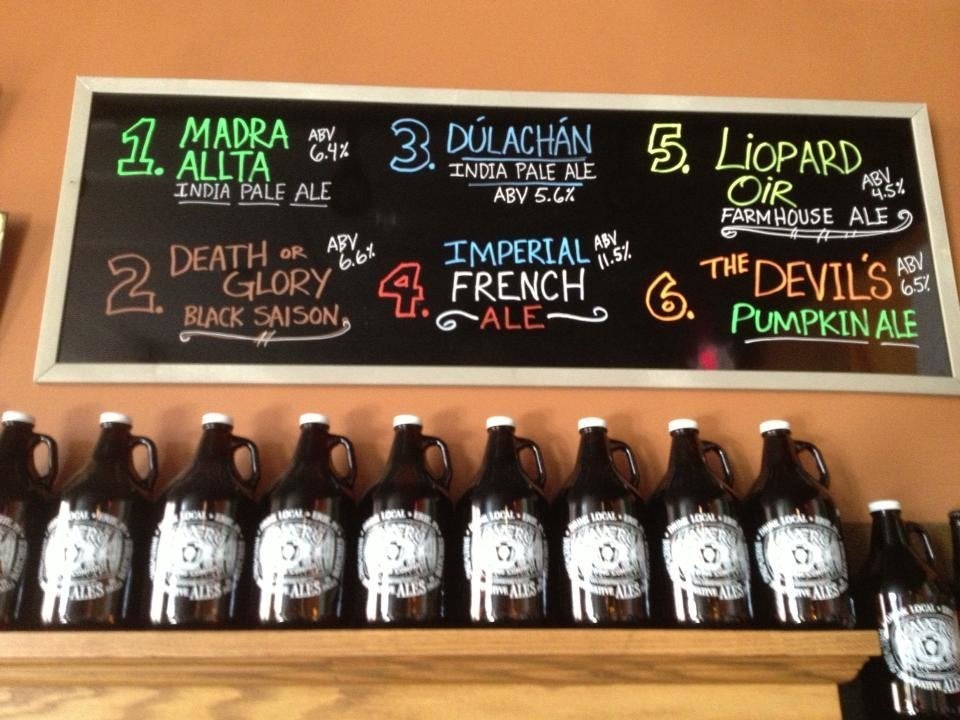 1. MADRA
ALLTA
ABV
6.4%
INDIA PALE ALE
2. DEATH OR
GLORY
ABV
6.6%
BLACK SAISON
3. DÚLACHÁN
INDIA PALE ALE
ABV 5.6%
4. IMPERIAL
FRENCH
ALE
ABV
11.5%
5. LiOPARD
OiR
ABV
4.5%
FARMHOUSE ALE
6. THE DEVIL'S
PUMPKIN ALE
ABV
6.5%
LOCAL
ALES
LOCAL
ALES
LOCAL
ALES
LOCAL
ALES
LOCAL
ALES
LOCAL
ALES
LOCAL
ALES
LOCAL
ALES
LOCAL